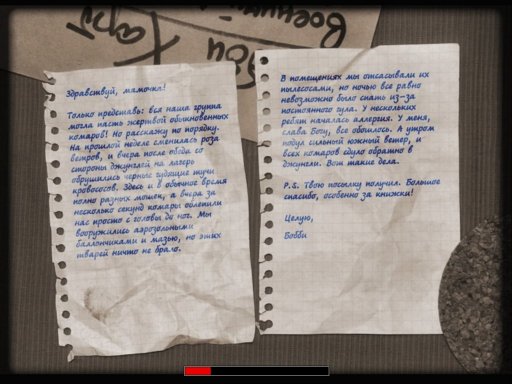 Военный
Здравствуй, мамочка!
Только представь: вся наша группа
могла пасть жертвой обыкновенных
комаров! Но расскажу по порядку.
На прошлой неделе сменилась роза
ветров, и вчера после обеда со
стороны джунглей на лагерь
обрушились черные гудящие тучи
кровососов. Здесь и в обычное время
полно разных мошек, а вчера за
несколько секунд комары облепили
нас просто с головы до ног. Мы
вооружились аэрозольными
баллончиками и мазью, но этих
тварей ничто не брало.
В помещениях мы отсасывали их
пылесосами, но ночью все равно
невозможно было спать из-за
постоянного гула. У нескольких
ребят началась аллергия. У меня,
слава Богу, все обошлось. А утром
подул сильный южный ветер, и
всех комаров сдуло обратно в
джунгли. Вот такие дела.
P.S. Твою посылку получил. Большое
спасибо, особенно за книжки!
Целую,
Бобби